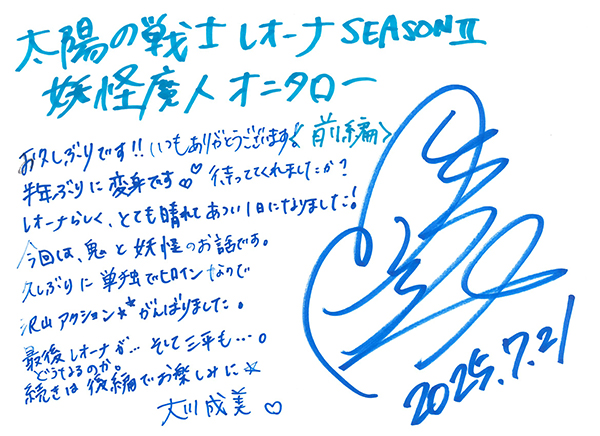 太陽の戦士 レオーナ SEASON II
妖怪魔人 オニタロー
〈前編〉
お久しぶりです!! いつもありがとうございます!
半年ぶりに変身です♡ 待っててくれましたか?
レオーナらしく、とても晴れてあつい1日になりました!
今回は、鬼と妖怪のお話です。
久しぶりに単独でヒロインなので
沢山アクション★★がんばりました。
最後レオーナが… そして三平も…。
どうなるのか。
続きは後編でお楽しみに★
大川成美♡
2025.7.21